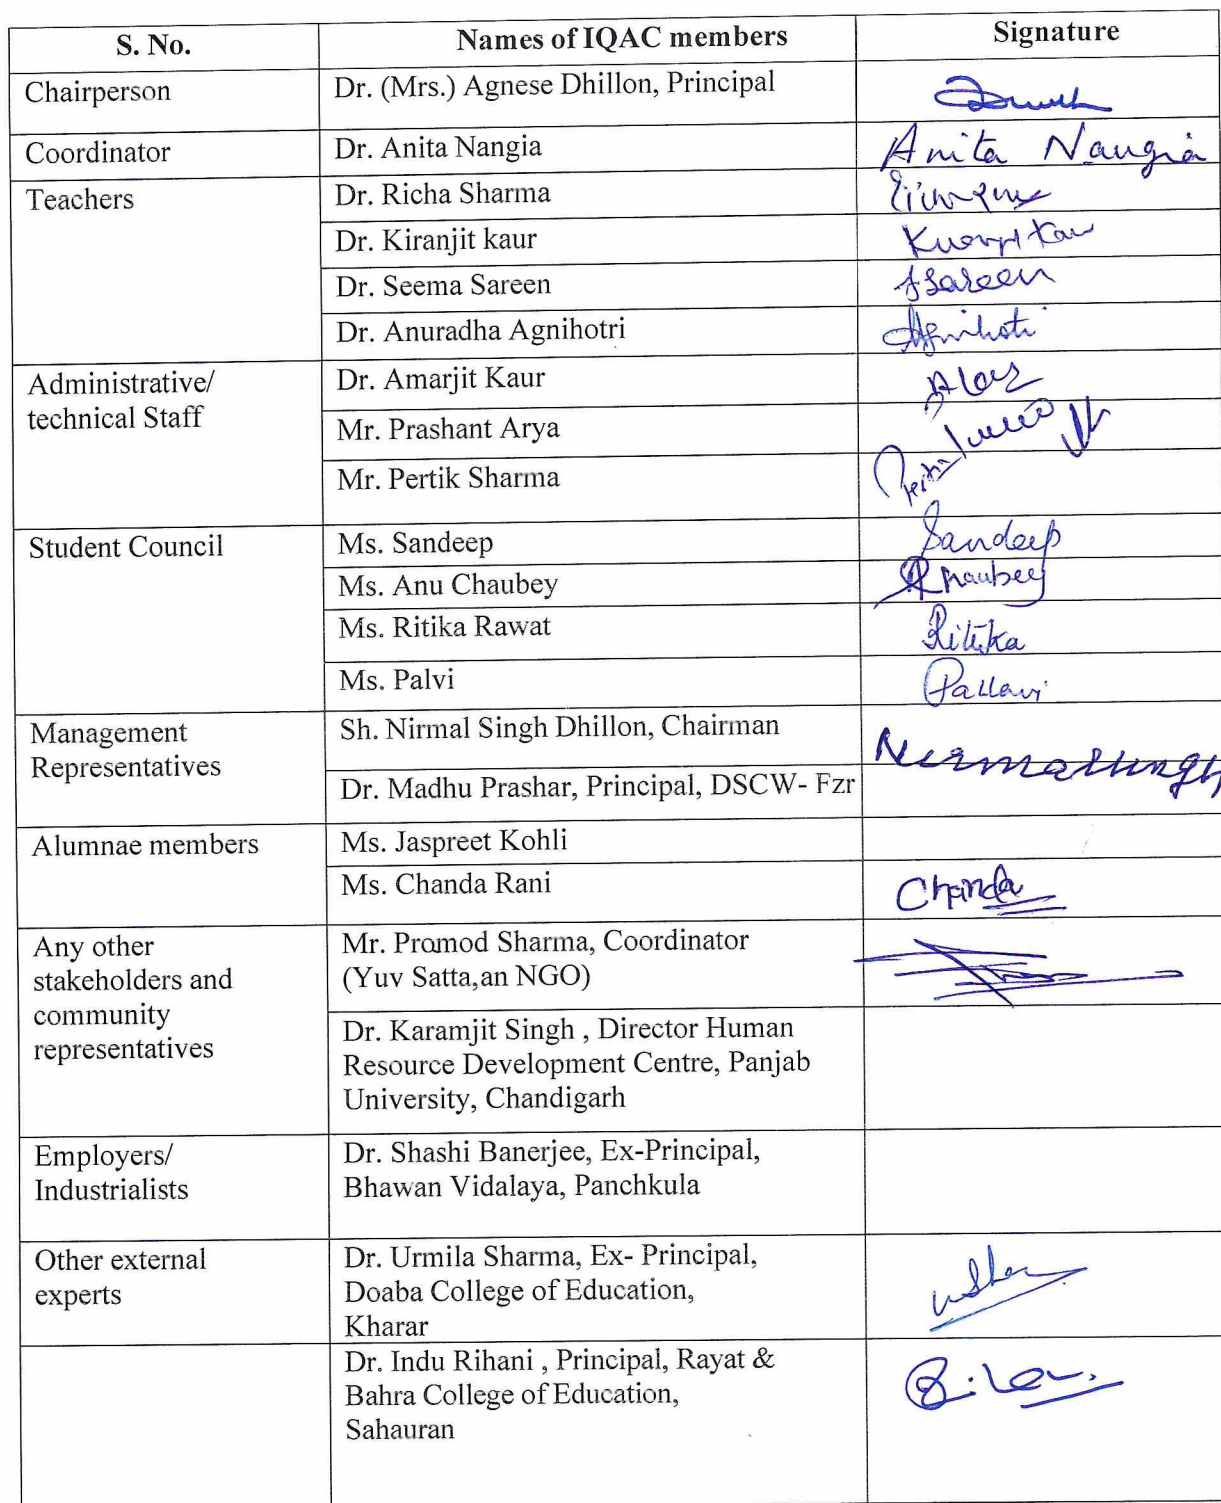 S. No. Names of IQAC members Signature
Chairperson Dr. (Mrs.) Agnese Dhillon, Principal
Coordinator Dr. Anita Nangia Anita Nangia
Teachers Dr. Richa Sharma
Dr. Kiranjit kaur
Dr. Seema Sareen SSareen
Dr. Anuradha Agnihotri Agnihoti
Administrative/
technical Staff
Dr. Amarjit Kaur
Mr. Prashant Arya
Mr. Pertik Sharma
Student Council Ms. Sandeep Sandeep
Ms. Anu Chaubey Chaubey
Ms. Ritika Rawat Ritika
Ms. Palvi Pallavi
Management
Representatives
Sh. Nirmal Singh Dhillon, Chairman Nirmal Singh
Dr. Madhu Prashar, Principal, DSCW- Fzr
Alumnae members Ms. Jaspreet Kohli
Ms. Chanda Rani Chanda
Any other
stakeholders and
community
representatives
Mr. Pramod Sharma, Coordinator
(Yuv Satta,an NGO)
Dr. Karamjit Singh , Director Human
Resource Development Centre, Panjab
University, Chandigarh
Employers/
Industrialists
Dr. Shashi Banerjee, Ex-Principal,
Bhawan Vidalaya, Panchkula
Other external
experts
Dr. Urmila Sharma, Ex- Principal,
Doaba College of Education,
Kharar
Dr. Indu Rihani , Principal, Rayat &
Bahra College of Education,
Sahauran